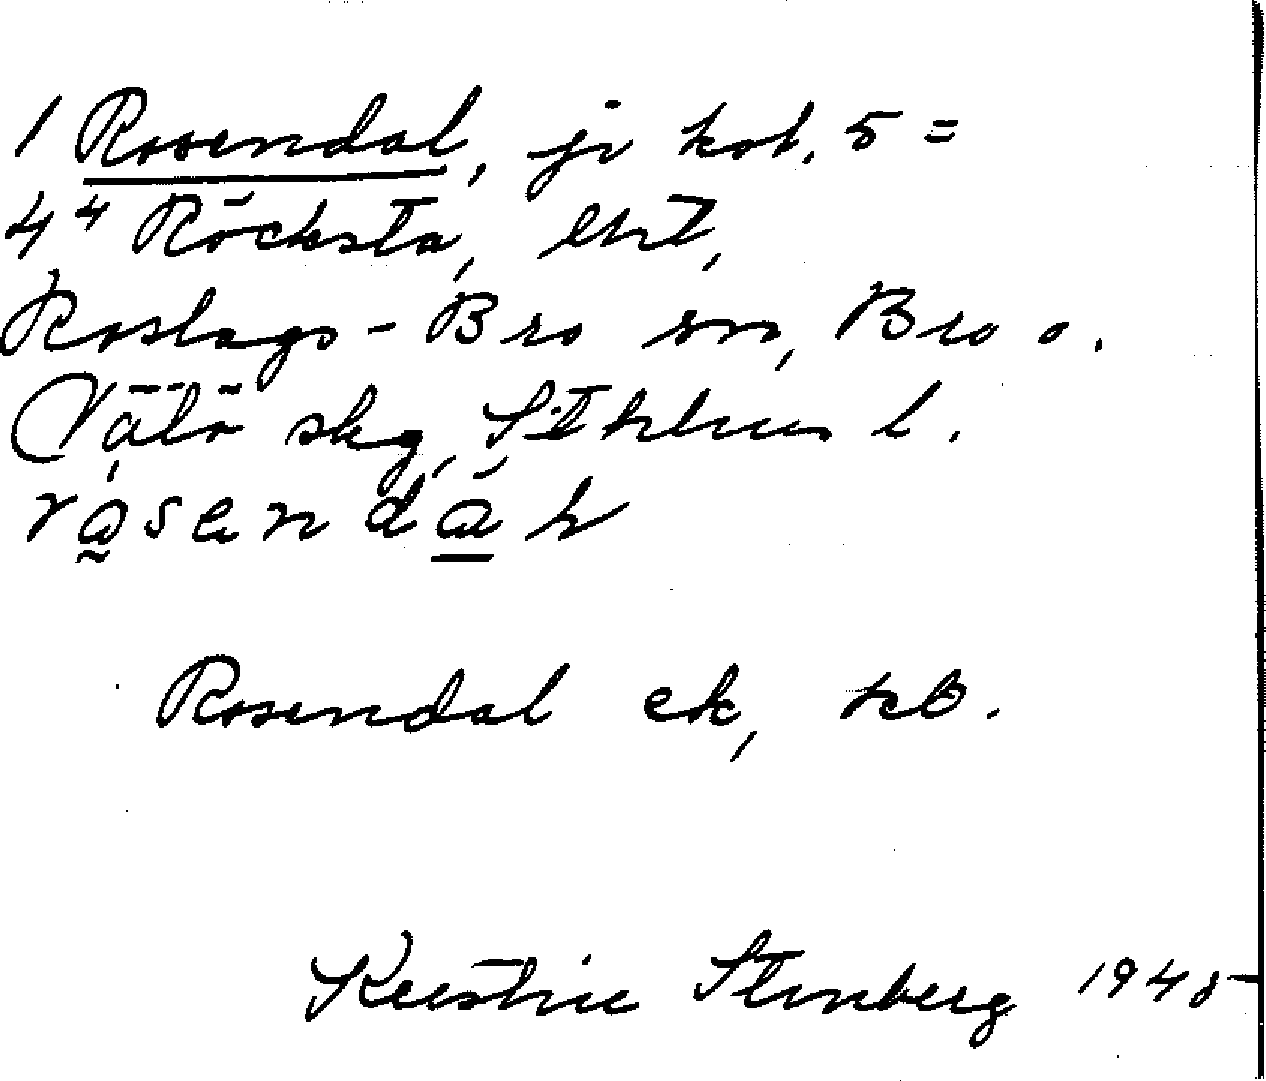 1 Rosendal, jr kol. 5 =
4⁴ Röcksta, lht,
Roslags-Bro sn, Bro o.
Vätö skg, Sthlms l.
Rosendal ek, kb.
Kerstin Stenberg 1945